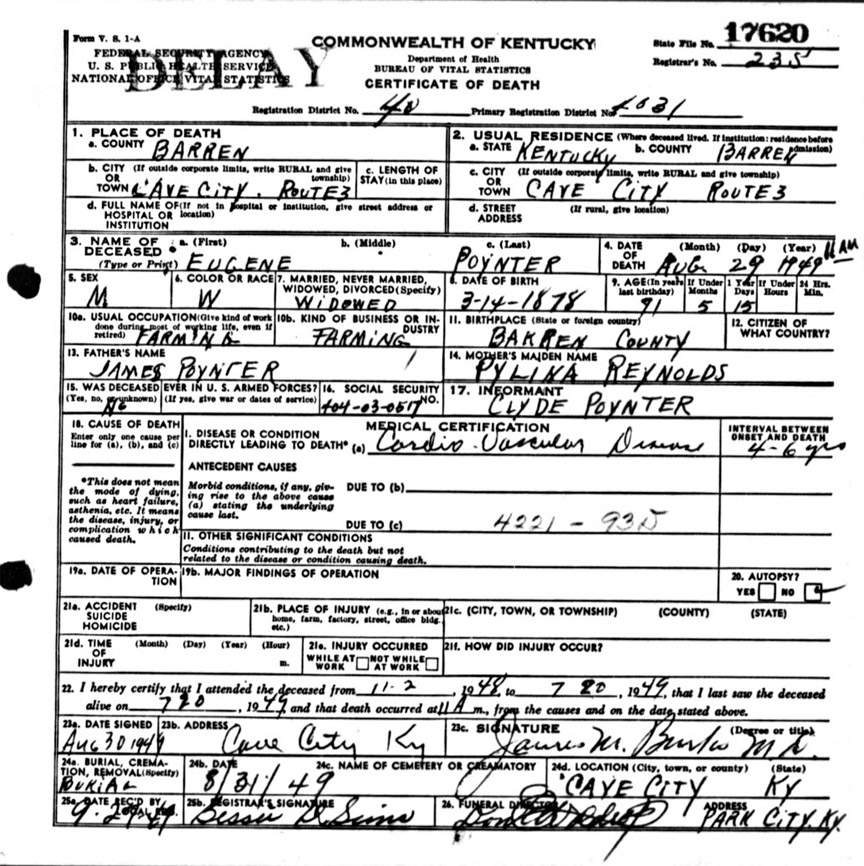 Form V. S. 1-A
FEDERAL SECURITY AGENCY
U. S. PUBLIC HEALTH SERVICE
NATIONAL OFFICE VITAL STATISTICS
DELAY
COMMONWEALTH OF KENTUCKY
Department of Health
BUREAU OF VITAL STATISTICS
CERTIFICATE OF DEATH
State File No. 17620
Registrar's No. 235
Registration District No. 40 Primary Registration District No. 4031
1. PLACE OF DEATH
a. COUNTY BARREN
2. USUAL RESIDENCE (Where deceased lived. If institution: residence before admission)
a. STATE KENTUCKY b. COUNTY BARREN
b. CITY (If outside corporate limits, write RURAL and give township) OR TOWN CAVE CITY. ROUTE 3
c. LENGTH OF STAY (in this place)
c. CITY (If outside corporate limits, write RURAL and give township) OR TOWN CAVE CITY ROUTE 3
d. FULL NAME OF (If not in hospital or institution, give street address or location) HOSPITAL OR INSTITUTION
d. STREET ADDRESS (If rural, give location)
3. NAME OF DECEASED (Type or Print) a. (First) b. (Middle) c. (Last)
EUGENE POYNTER
4. DATE OF DEATH (Month) (Day) (Year)
AUG 29 1949 11 AM
5. SEX
M
6. COLOR OR RACE
W
7. MARRIED, NEVER MARRIED, WIDOWED, DIVORCED (Specify)
WIDOWED
8. DATE OF BIRTH
3-14-1878
9. AGE (In years last birthday) If Under 1 Year Months Days If Under 24 Hrs. Hours Min.
71 5 15
10a. USUAL OCCUPATION (Give kind of work done during most of working life, even if retired)
FARMING
10b. KIND OF BUSINESS OR INDUSTRY
FARMING
11. BIRTHPLACE (State or foreign country)
BARREN COUNTY
12. CITIZEN OF WHAT COUNTRY?
13. FATHER'S NAME
JAMES POYNTER
14. MOTHER'S MAIDEN NAME
PYLINA REYNOLDS
15. WAS DECEASED EVER IN U. S. ARMED FORCES? (Yes, no, or unknown) (If yes, give war or dates of service)
NO
16. SOCIAL SECURITY NO.
404-03-0517
17. INFORMANT
CLYDE POYNTER
18. CAUSE OF DEATH
Enter only one cause per line for (a), (b), and (c)
MEDICAL CERTIFICATION
INTERVAL BETWEEN ONSET AND DEATH
I. DISEASE OR CONDITION DIRECTLY LEADING TO DEATH* (a) Cardio-Vascular Disease 4-6 yrs
*This does not mean the mode of dying, such as heart failure, asthenia, etc. It means the disease, injury, or complication which caused death.
ANTECEDENT CAUSES
Morbid conditions, if any, giving rise to the above cause (a) stating the underlying cause last.
DUE TO (b)
DUE TO (c)
4221 - 93D
II. OTHER SIGNIFICANT CONDITIONS
Conditions contributing to the death but not related to the disease or condition causing death.
19a. DATE OF OPERATION
19b. MAJOR FINDINGS OF OPERATION
20. AUTOPSY?
YES NO
21a. ACCIDENT (Specify) SUICIDE HOMICIDE
21b. PLACE OF INJURY (e.g., in or about home, farm, factory, street, office bldg. etc.)
21c. (CITY, TOWN, OR TOWNSHIP) (COUNTY) (STATE)
21d. TIME OF INJURY (Month) (Day) (Year) (Hour) m.
21e. INJURY OCCURRED
WHILE AT WORK NOT WHILE AT WORK
21f. HOW DID INJURY OCCUR?
22. I hereby certify that I attended the deceased from 11-2, 1948, to 7 20, 1949, that I last saw the deceased
alive on 7 20, 1949 and that death occurred at 11 A m., from the causes and on the date stated above.
23a. DATE SIGNED
Aug 30 1949
23b. ADDRESS
Cave City Ky
23c. SIGNATURE (Degree or title)
James M. M.D.
24a. BURIAL, CREMATION, REMOVAL (Specify)
BURIAL
24b. DATE
8/31/49
24c. NAME OF CEMETERY OR CREAMATORY
24d. LOCATION (City, town, or county) (State)
CAVE CITY KY
25a. DATE REC'D BY LOCAL REG.
9-29-49
25b. REGISTRAR'S SIGNATURE
Bessie D. Sims
26. FUNERAL DIRECTOR ADDRESS
PARK CITY, KY.